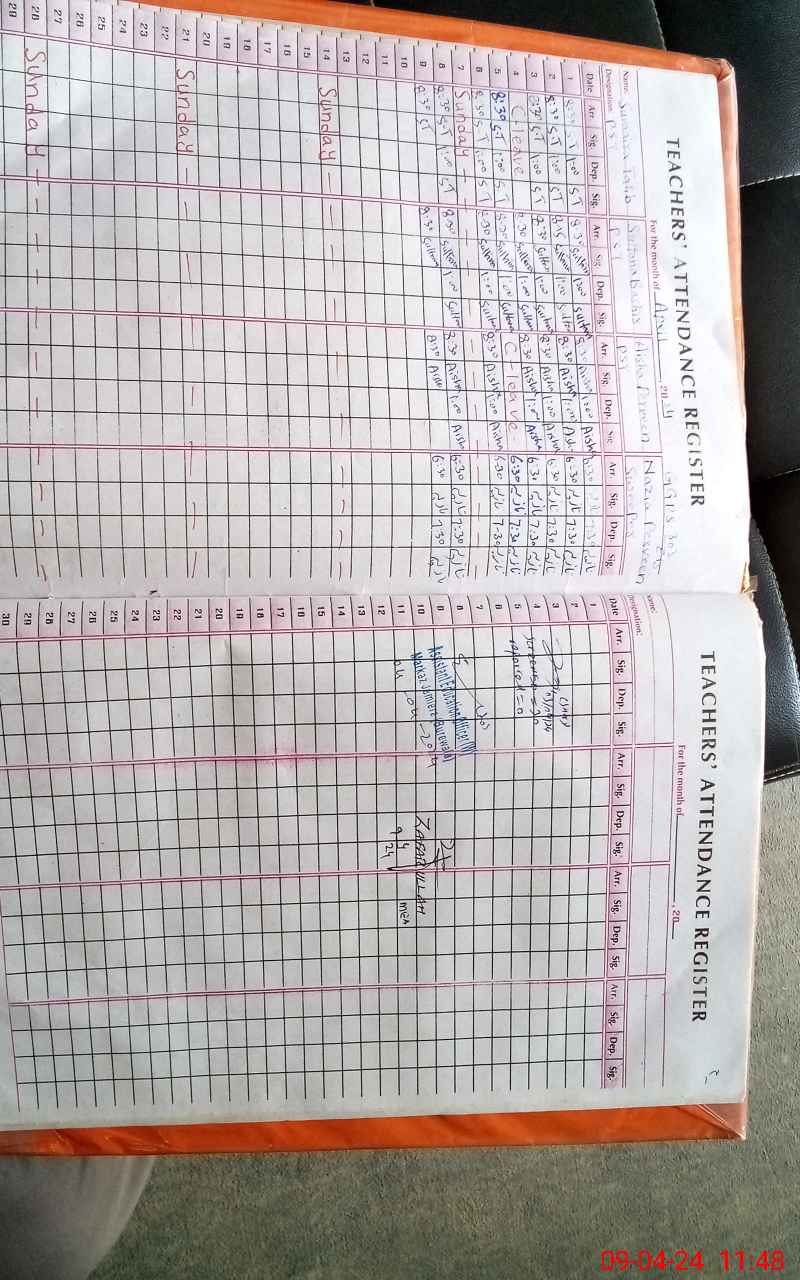 TEACHERS' ATTENDANCE REGISTER
For the month of April 2024
Name: Sumaira Talib Sultana Aisha Parveen Nazia Parveen
Designation: PST PST PST
Date Arr. Sig. Dep. Sig. Arr. Sig. Dep. Sig. Arr. Sig. Dep. Sig. Arr. Sig. Dep. Sig.
1 8:30 S.T 1:00 S.T 8:30 Sultana 1:00 Sultana 8:30 Aisha 1:00 Aisha 6:30 نازیہ 7:30 نازیہ
2 8:30 S.T 1:00 S.T 8:25 Sultana 1:00 Sultana 8:30 Aisha 1:00 Aisha 6:30 نازیہ 7:30 نازیہ
3 8:30 S.T 1:00 S.T 8:30 Sultana 1:00 Sultana 8:30 Aisha 1:00 Aisha 6:30 نازیہ 7:30 نازیہ
4 C-leave 8:30 Sultana 1:00 Sultana 8:30 Aisha 1:00 Aisha 6:30 نازیہ 7:30 نازیہ
5 8:30 S.T 1:00 S.T 8:30 Sultana 1:00 Sultana C-leave 6:30 نازیہ 7:30 نازیہ
6 8:30 S.T 1:00 S.T 8:30 Sultana 1:00 Sultana 8:30 Aisha 1:00 Aisha 6:30 نازیہ 7:30 نازیہ
7 Sunday
8 8:30 S.T 1:00 S.T 8:30 Sultana 1:00 Sultana 8:30 Aisha 1:00 Aisha 6:30 نازیہ 7:30 نازیہ
9 8:30 S.T 8:30 Sultana 8:30 Aisha 6:30 نازیہ 7:30 نازیہ
10
11
12
13
14 Sunday
15
16
17
18
19
20
21 Sunday
22
23
24
25
26
27
28 Sunday
29
TEACHERS' ATTENDANCE REGISTER
For the month of , 20
Name:
Designation:
Date Arr. Sig. Dep. Sig. Arr. Sig. Dep. Sig. Arr. Sig. Dep. Sig. Arr. Sig. Dep. Sig.
1
2
3
4
5
6
7
8
9
10
11
12
13
14
15
16
17
18
19
20
21
22
23
24
25
26
27
28
29
30
Assistant Education Officer (W)
Markaz Jamlera (Burewala)
04-04-2024
ZAFARULLAH MEA
9 4 24
09-04-24 11:48